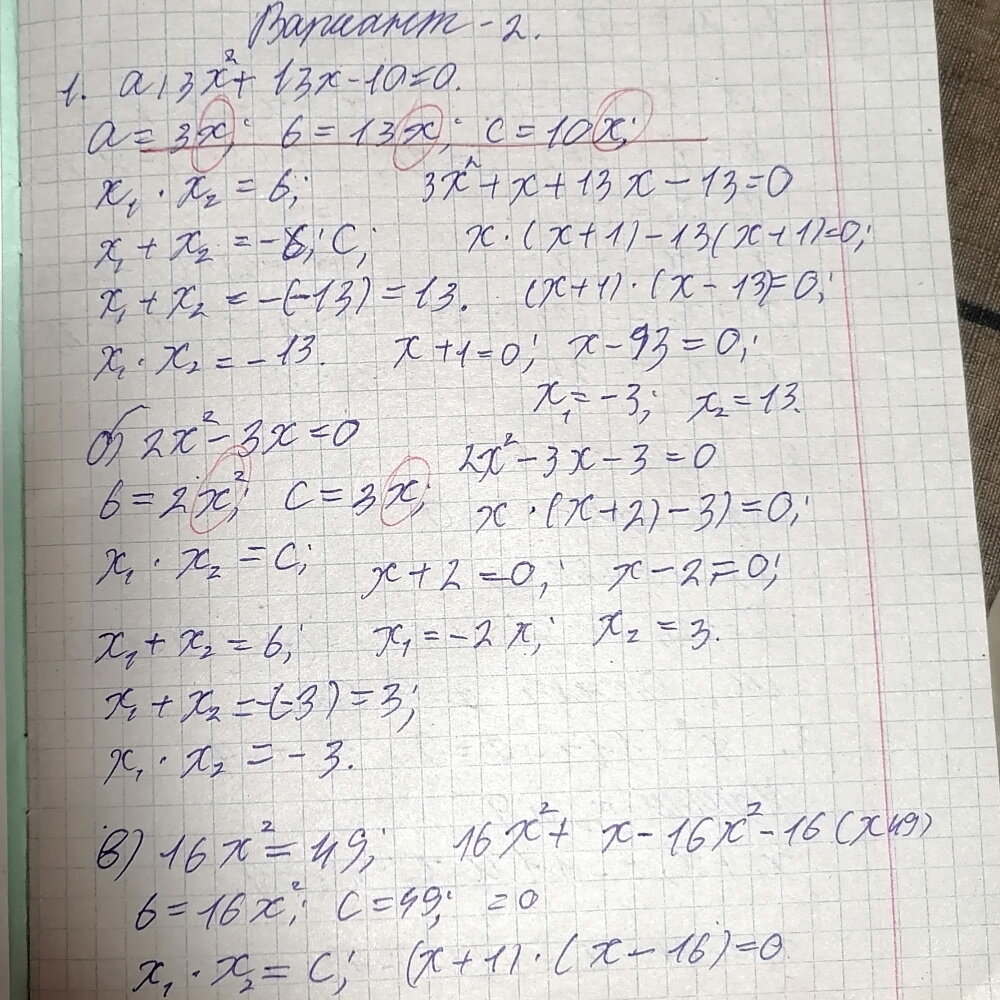 Вариант - 2.
1. а) 3x² + 13x - 10 = 0.
a = 3x; b = 13x; c = 10x;
x₁ · x₂ = b; 3x² + x + 13x - 13 = 0
x₁ + x₂ = -b; c; x · (x + 1) - 13(x + 1) = 0;
x₁ + x₂ = -(-13) = 13. (x + 1) · (x - 13) = 0;
x₁ · x₂ = -13. x + 1 = 0; x - 93 = 0;
x₁ = -3; x₂ = 13.
б) 2x² - 3x = 0 2x² - 3x - 3 = 0
b = 2x²; c = 3x; x · (x + 2) - 3) = 0;
x₁ · x₂ = c; x + 2 = 0; x - 2 = 0;
x₁ + x₂ = b; x₁ = -2x; x₂ = 3.
x₁ + x₂ = -(-3) = 3;
x₁ · x₂ = -3.
в) 16x² = 49; 16x² + x - 16x² - 16(x49)
b = 16x²; c = 49; = 0
x₁ · x₂ = c; (x + 1) · (x - 16) = 0